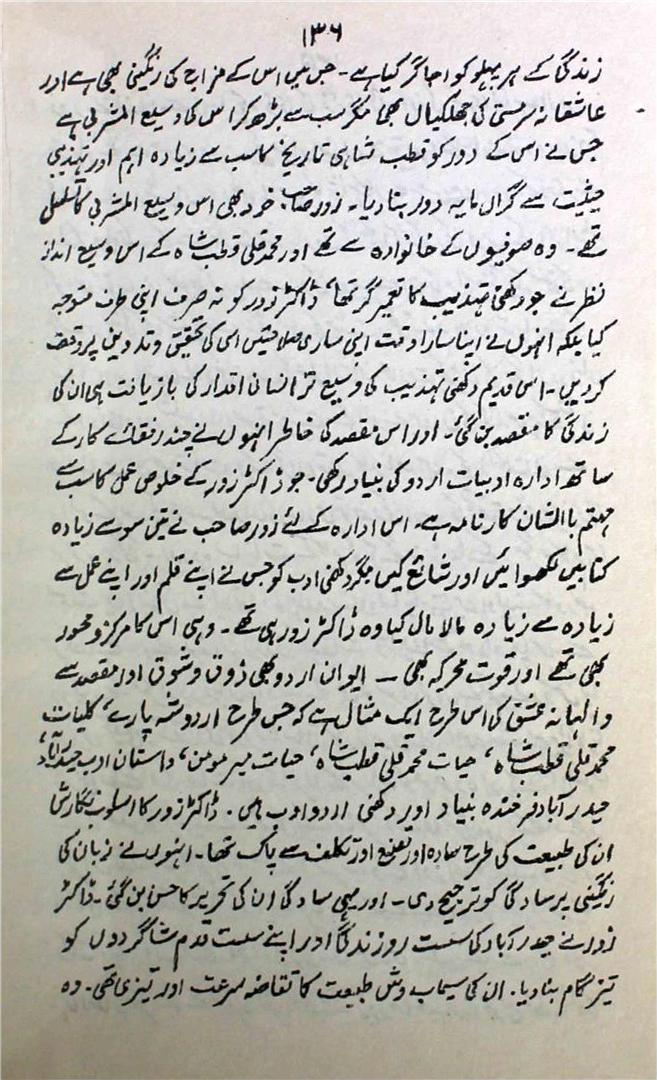 ۱۳۶
زندگی کے ہر پہلو کو اجاگر کیا ہے۔ جس میں اس کے مزاج کی رنگینی بھی ہے اور
عاشقانہ سرمستی کی جھلکیاں بھی مگر سب سے بڑھ کر اس کی وسیع المشربی ہے
جس نے اس کے دور کو قطب شاہی تاریخ کا سب سے زیادہ اہم اور تہذیبی
حیثیت سے گراں مایہ دور بنا دیا۔ زور صاحب خود بھی اس وسیع المشربی کا تسلسل
تھے۔ وہ صوفیوں کے خانوادہ سے تھے اور محمد قلی قطب شاہ کے اس وسیع انداز
نظر نے جو دکھنی تہذیب کا تعمیر گر تھا، ڈاکٹر زور کو نہ صرف اپنی طرف متوجہ
کیا بلکہ انہوں نے اپنا سارا وقت اپنی ساری صلاحیتیں اسی کی تحقیق و تدوین پر وقف
کردیں۔ اس قدیم دکھنی تہذیب کی وسیع تر انسانی اقدار کی بازیافت ہی ان کی
زندگی کا مقصد بن گئی۔ اور اس مقصد کی خاطر انہوں نے چند رفقائے کار کے
ساتھ ادارہ ادبیات اردو کی بنیاد رکھی۔ جو ڈاکٹر زور کے خلوص عمل کا سب سے
مہتم باالشان کارنامہ ہے۔ اس ادارہ کے لئے زور صاحب نے تین سو سے زیادہ
کتابیں لکھوائیں اور شائع کیں مگر دکھنی ادب کو جس نے اپنے قلم اور اپنے عمل سے
زیادہ سے زیادہ مالا مال کیا وہ ڈاکٹر زور ہی تھے۔ وہی اس کا مرکز و محور
بھی تھے اور قوت محرکہ بھی ۔ ایوان اردو بھی ذوق و شوق اور مقصد سے
والہانہ عشق کی اس طرح ایک مثال ہے کہ جس طرح اردو شہ پارے، کلیات
محمد قلی قطب شاہ، حیات محمد قلی قطب شاہ، حیات میر مومن، داستان ادب حیدرآباد،
حیدرآباد فرخندہ بنیاد اور دکھنی اردو ادب ہیں۔ ڈاکٹر زور کا اسلوب نگارش
ان کی طبیعت کی طرح سادہ اور تصنع اور تکلف سے پاک تھا۔ انہوں نے زبان کی
رنگینی پر سادگی کو ترجیح دی۔ اور یہی سادگی ان کی تحریر کا حسن بن گئی۔ ڈاکٹر
زور نے حیدرآباد کی سست رو زندگی اور اپنے سست قدم شاگردوں کو
تیز گام بنا دیا۔ ان کی سیماب وش طبیعت کا تقاضہ سرعت اور تیزی تھی۔ وہ